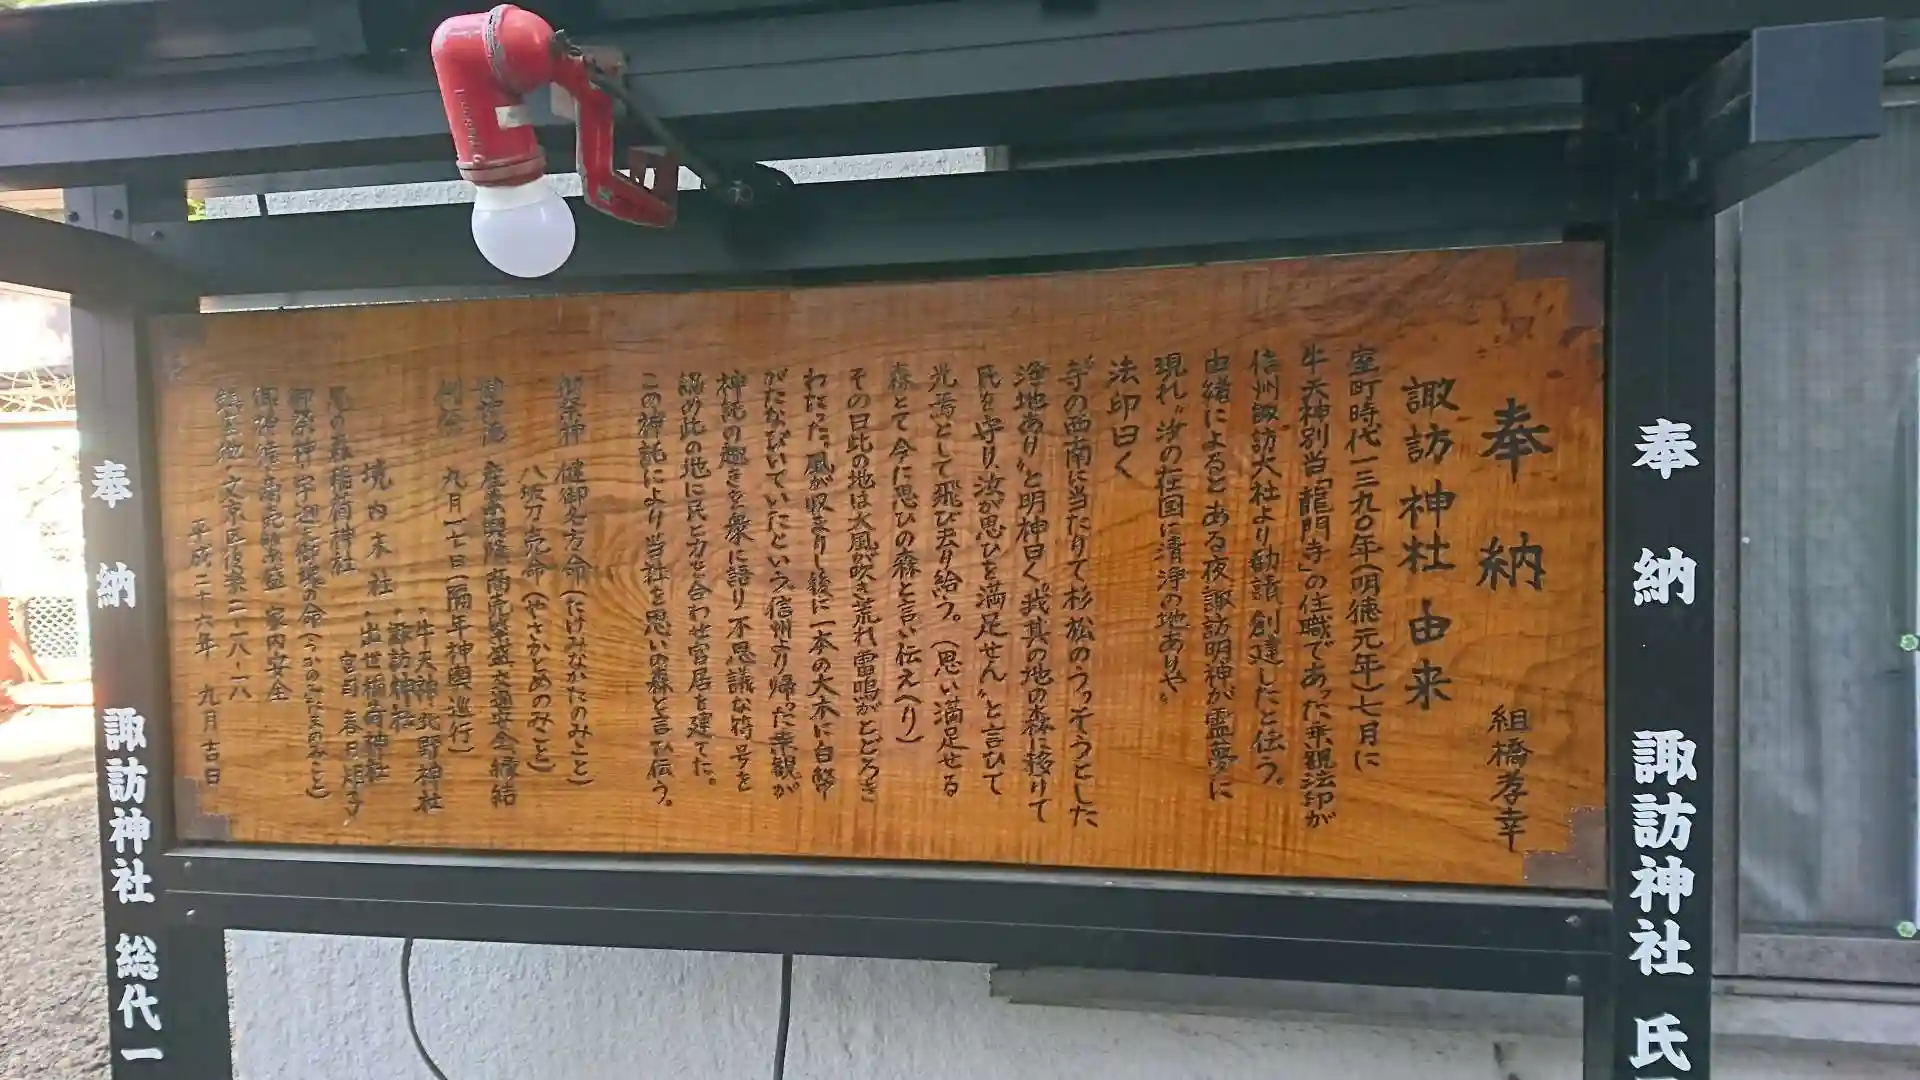 奉納
組橋孝幸
諏訪神社由来
室町時代一三九〇年(明徳元年)七月に
牛天神別当「龍門寺」の住職であった乗観法印が
信州諏訪大社より勧請、創建したと伝う。
由緒によるとある夜諏訪明神が霊夢に
現れ〝汝の在国に清浄の地ありや〟
法印曰く
寺の西南に当たりて杉松のうっそうとした
浄地あり〟と明神曰く〝我其の地の森に移りて
氏を守り、汝が思ひを満足せん〟と言ひて
光焉として飛び去り給う。(思い満足せる
森とて今に思ひの森と言い伝えへり)
その日此の地は大風が吹き荒れ、雷鳴がとどろき
わたった。風が収まりし後に一本の大木に白幣
がたなびいていたという。信州より帰った乗観が
神託の趣きを衆に語り不思議な符号を
認め此の地に民と力を合わせ宮居を建てた。
この神託により当社を思いの森と言ひ伝う。
御祭神 健御名方命(たけみなかたのみこと)
八坂刀売命(やさかとめのみこと)
御神徳 産業興隆 商売繁盛 交通安全 縁結
例祭 九月二七日(隔年神輿巡行)
境内末社 ・牛天神北野神社
・諏訪神社
・出世稲荷神社
思の森稲荷神社 宮司 春日
御祭神 宇迦之御魂の命(うかのみたまのみこと)
御神徳 商売繁盛 家内安全
鎮座地・文京区後楽二・一八・一八
平成二十六年 九月吉日
奉納 諏訪神社 氏
奉納 諏訪神社 総代一